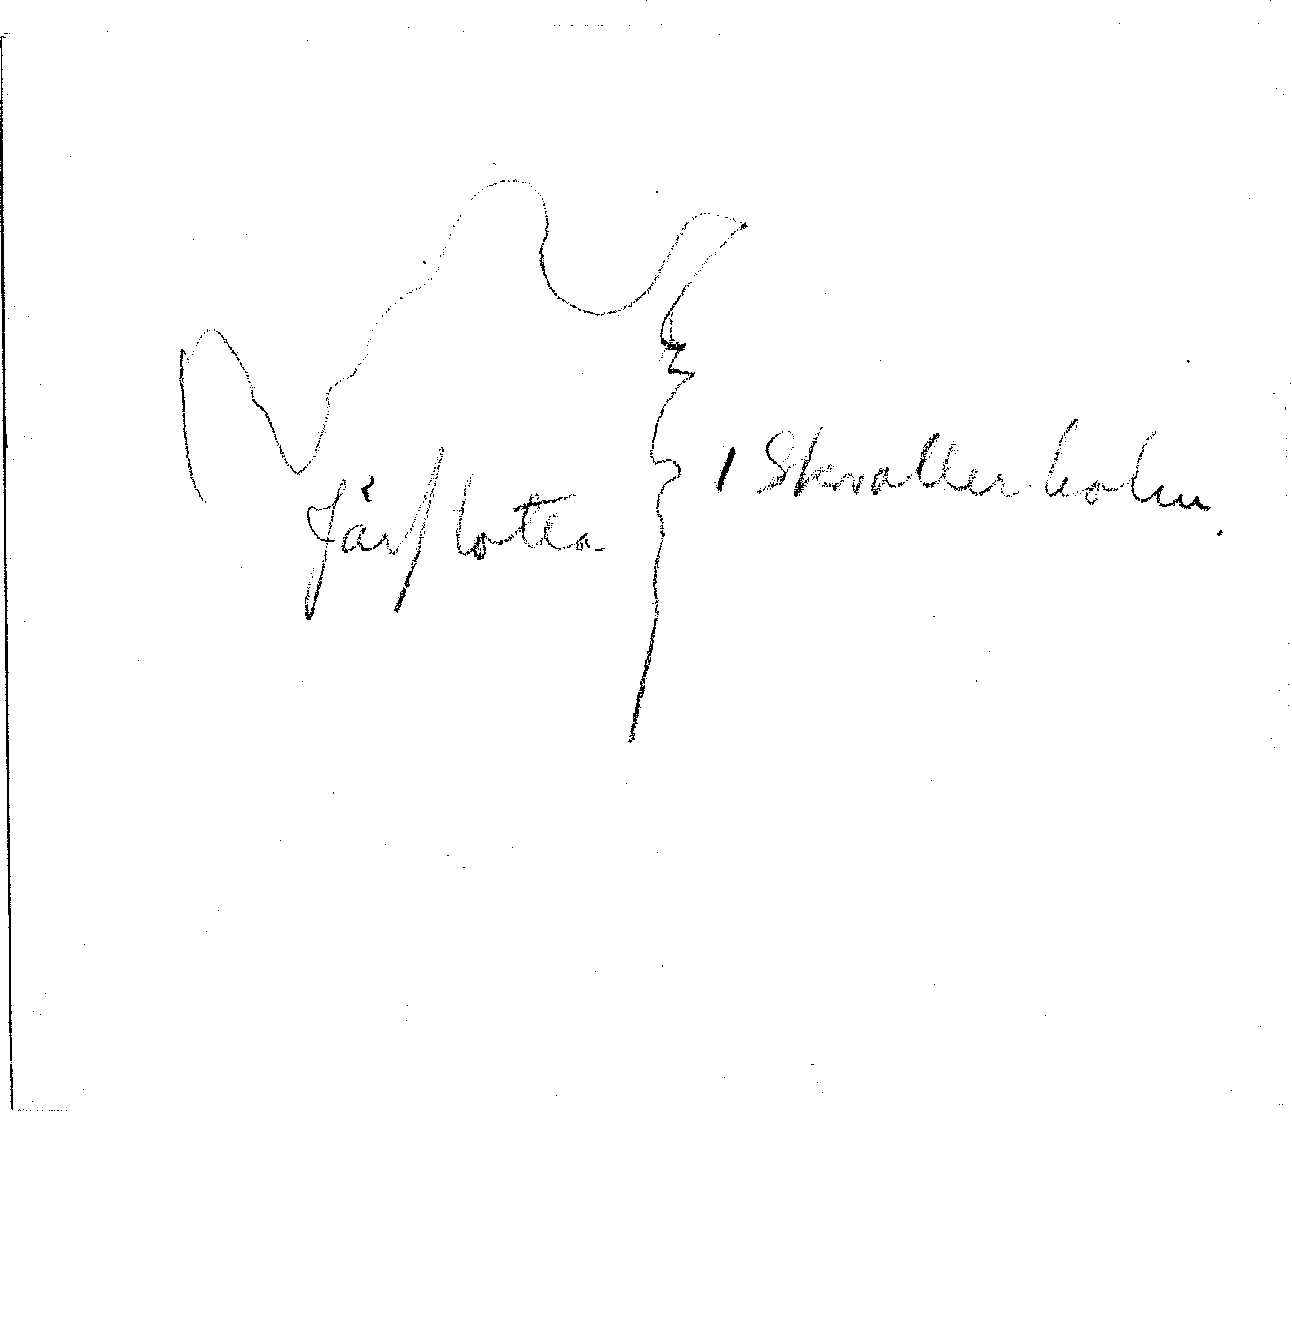 Järflotta
Skvallerholm.